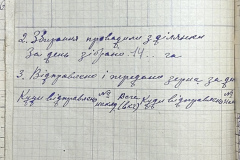 2. Збирання проводили з ділянки
За день зібрано 14... га
3. Відправлено і передано зерна за день
Куди відправлено № накл Вага (вкг) Куди відправлено №